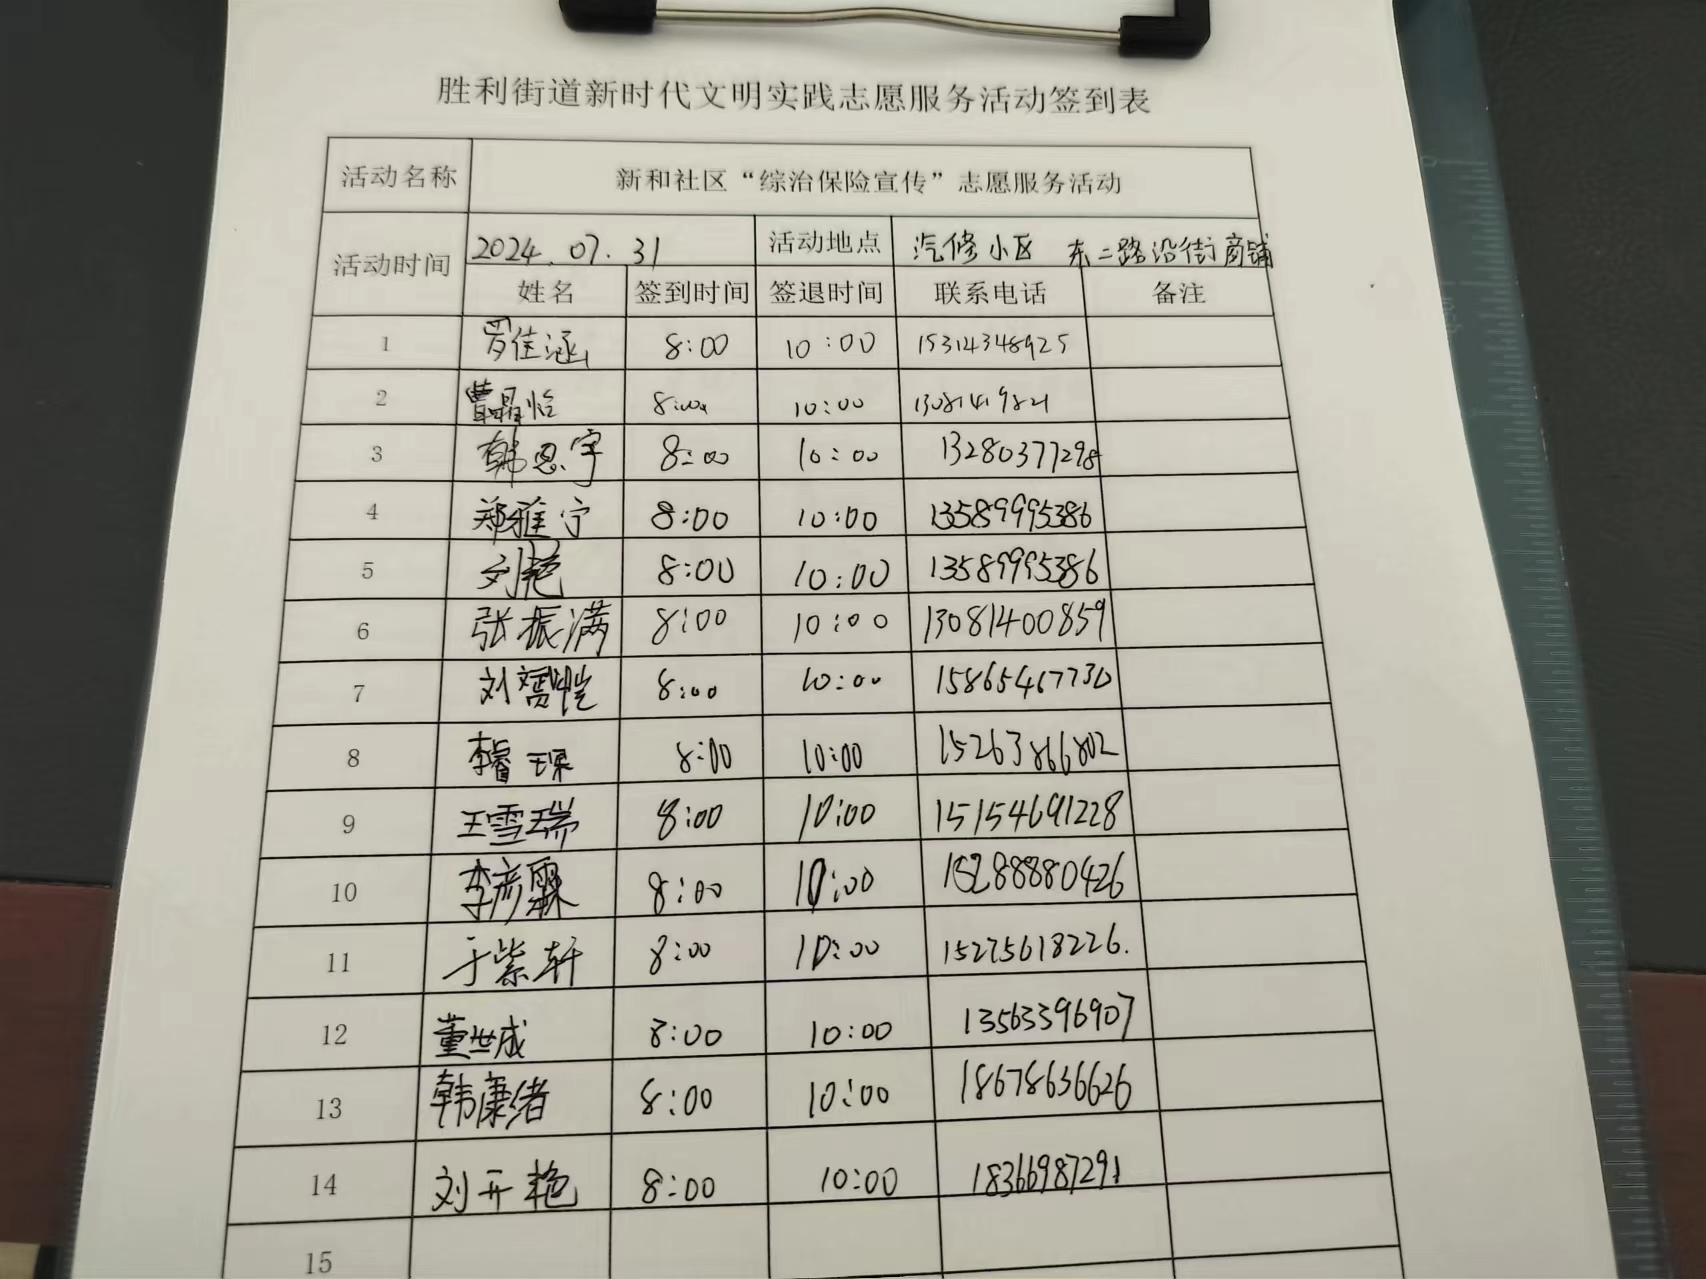 胜利街道新时代文明实践志愿服务活动签到表
活动名称 新和社区“综治保险宣传”志愿服务活动
活动时间 2024.07.31 活动地点 汽修小区 东二路沿街商铺
姓名 签到时间 签退时间 联系电话 备注
1 罗佳涵 8:00 10:00 15314348925
2 曹晶怡 8:00 10:00 13081419821
3 韩恩宇 8:00 10:00 13280377298
4 郑雅宁 8:00 10:00 13589995386
5 刘艳 8:00 10:00 13589995386
6 张振满 8:00 10:00 13081400859
7 刘赟恺 8:00 10:00 15865467730
8 李睿琛 8:00 10:00 15263866802
9 王雪瑞 8:00 10:00 15154691228
10 李彦霖 8:00 10:00 15288880426
11 于紫轩 8:00 10:00 15275618226.
12 董世成 8:00 10:00 13563396907
13 韩康绪 8:00 10:00 18678636626
14 刘开艳 8:00 10:00 18366987291
15